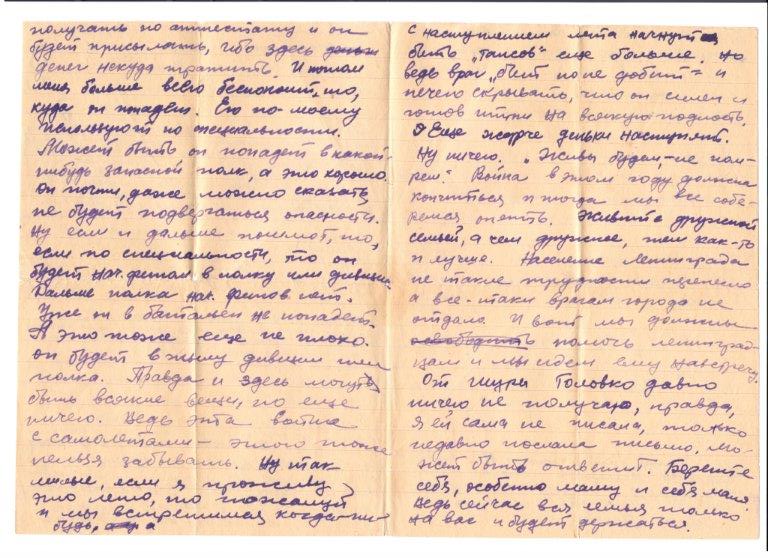 получать по аттестату и он
будет присылать, ибо здесь
денег некуда тратить. И потом
меня больше всего беспокоит, то,
куда он попадет. Его по-моему
используют по специальности.
Может быть он попадет в какой-
нибудь запасной полк, а это хорошо.
Он почти, даже можно сказать,
не будет подвергаться опасности.
Ну если и дальше пошлют, то,
если по специальности, то он
будет нач. фином в полку или дивизии.
Дальше полка нач. финов нет.
Уже он в батальон не попадет.
А это тоже еще не плохо.
он будет в тылу дивизии или
полка. Правда и здесь могут
быть всякие вещи, но еще
ничего. Ведь эта война
с самолетами - этого тоже
нельзя забывать. Ну так
милые, если я проживу
это лето, то пожалуй
и мы встретимся когда-ни-
будь, а
с наступлением лета начнутся
быть „таксов“ еще больше. Но
ведь враг „бит но не добит“ и
нечего скрывать, что он силен и
готов идти на всякую подлость.
Еще жарче деньки наступят.
Ну ничего. „Живы будем - не пом-
рем“. Война в этом году должна
кончиться и тогда мы все собе-
ремся опять. Живите дружной
семьей, а чем дружнее, тем как-то
и лучше. Население Ленинграда
не такие трудности перенесло
а все-таки врагам города не
отдало. И вот мы должны
освободить помочь ленинград-
цам и мы идем ему навстречу.
От Шуры Головко давно
ничего не получаю, правда,
я ей сама не писала, только
недавно послала письмо, мо-
жет быть ответит. Берегите
себя, особенно маму и себя
Ведь сейчас вся семья только
на вас и будет держаться.